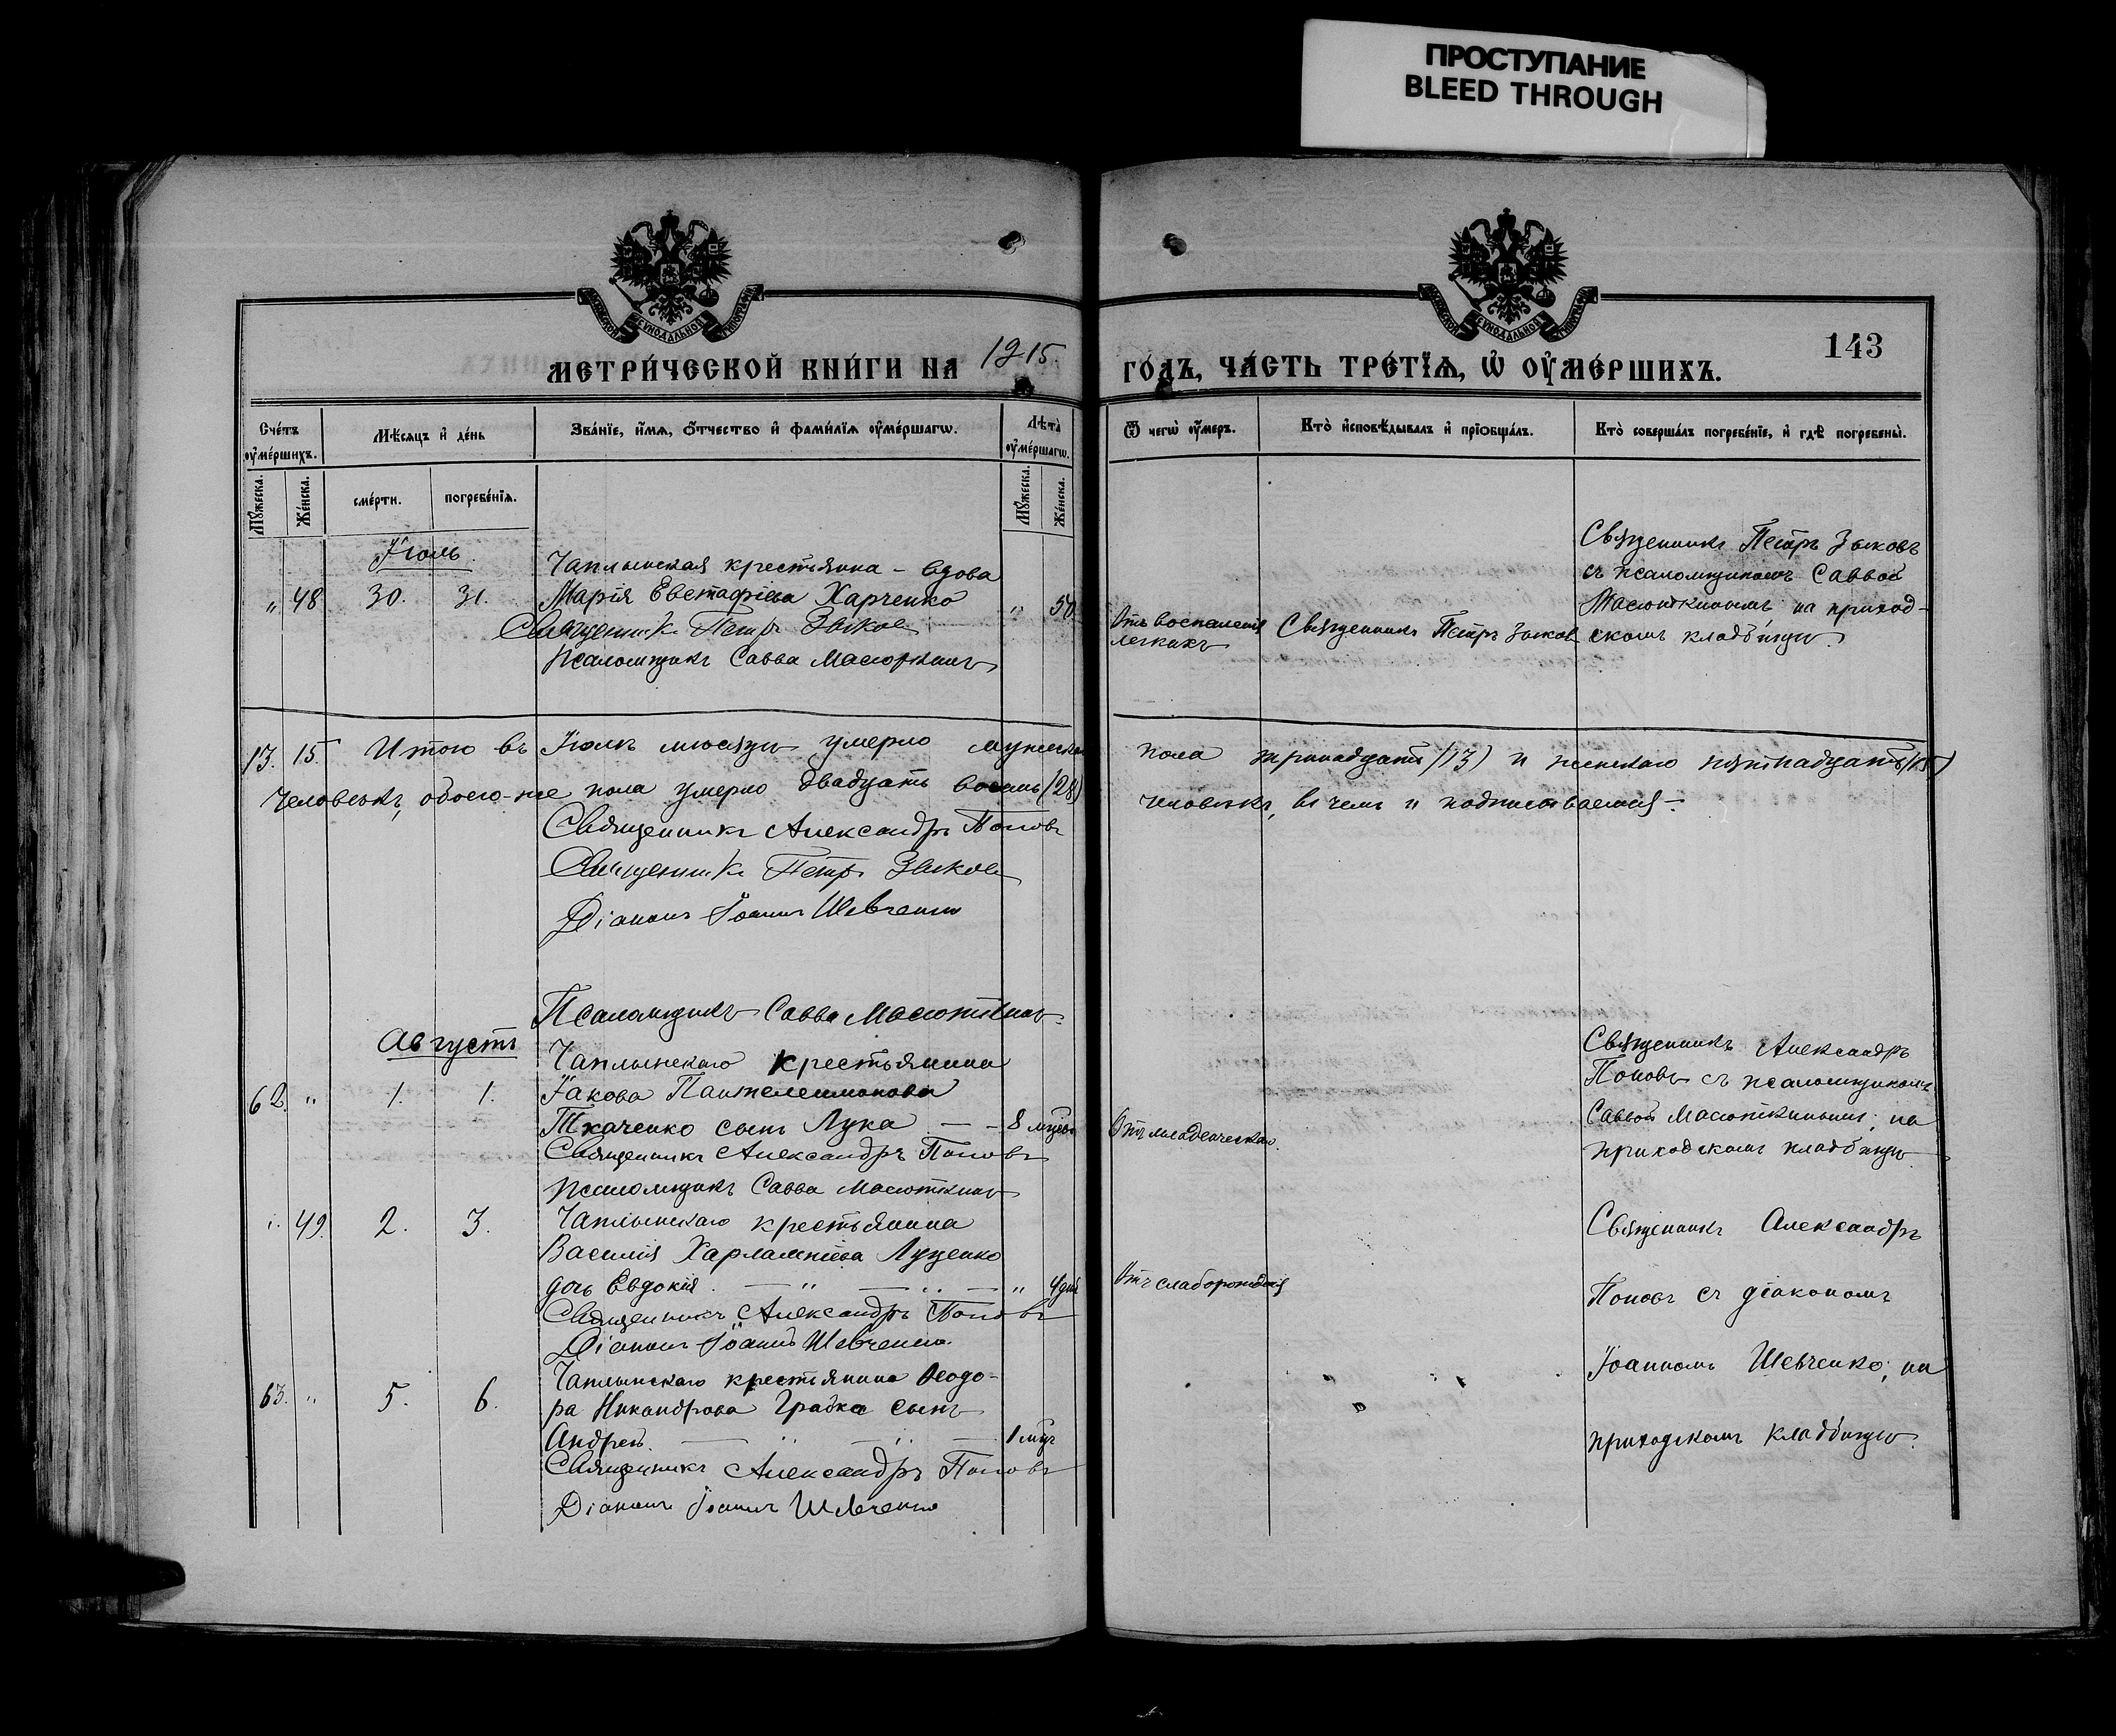 ПРОСТУПАНИЕ
BLEED THROUGH
МЕТРИ́ЧЕСКОЙ КНИ́ГИ НА 1915.
ГО́ДЪ, ЧА́СТЬ ТРЕ́ТЇѦ, Ѡ҆ ОУ҆МЕ́РШИХЪ.
143
Сче́тъ оу҆ме́ршихъ.
Мѣ́сѧцъ и҆ де́нь
Зва́нїе, и҆́мѧ, ѻ҆́тчество и҆ фами́лїѧ оу҆ме́ршагѡ.
Лѣ́та оу҆ме́ршагѡ.
Ѿ чегѡ̀ оу҆́меръ.
Кто̀ и҆сповѣ́дывалъ и҆ прїобща́лъ.
Кто̀ соверша́лъ погребе́нїе, и҆ гдѣ̀ погребены̀.
Мꙋ́жеска.
Же́нска.
сме́рти.
погребе́нїѧ.
Мꙋ́жеска.
Же́нска.
Іюль.
Чаплынская крестьянка - вдова
" 48 30. 31. Марія Евстафіева Харченко " 50
Священникъ Петръ Зыковъ
Псаломщикъ Савва Масюткинъ
Отъ воспаленія
легкихъ
Священникъ Петръ Зыковъ
Священникъ Петръ Зыковъ
съ псаломщикомъ Саввой
Масюткинымъ на приход-
скомъ кладбищѣ.
13. 15 Итого въ Іюлѣ мѣсяцѣ умерло мужеска
пола тринадцать (13) и женскаго пятнадцать (15)
человѣкъ, обоего-же пола умерло двадцать восемь (28)
человѣкъ, въ чемъ и подписываемся.
Священникъ Александръ Поповъ
Священникъ Петръ Зыковъ
Діаконъ Іоаннъ Шевченко
Псаломщикъ Савва Масюткинъ.
Августъ
Чаплынскаго крестьянина
62. " 1. 1. Іакова Пантелеимонова
Ткаченко сынъ Лука — - 8 мцевъ
Священникъ Александръ Поповъ
Псаломщикъ Савва Масюткинъ
Отъ младенческаго.
Священникъ Александръ
Поповъ съ псаломщикомъ
Саввой Масюткинымъ, на
приходскомъ кладбищѣ
" 49. 2. 3. Чаплынскаго крестьянина
Василія Харлампіева Луценко
дочь Евдокія. — " — " — " 4 дня
Священникъ Александръ Поповъ
Діаконъ Іоаннъ Шевченко.
Отъ слаборожденія
Священникъ Александръ
Поповъ съ діакономъ
Іоанномъ Шевченко, на
приходскомъ кладбищѣ.
Чаплынскаго крестьянина Ѳеодо-
63. " 5. 6. ра Никандрова Градка сынъ
Андрей. — " — " — 1 мцъ
Священникъ Александръ Поповъ
Діаконъ Іоаннъ Шевченко